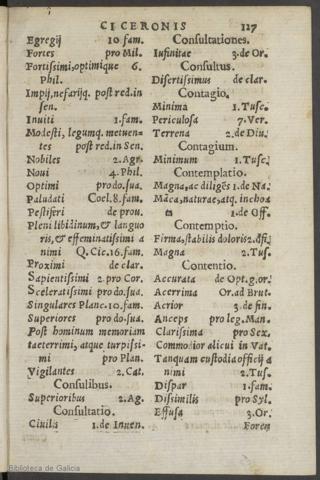 CICERONIS 127
Egregij 10. fam.
Fortes pro Mil.
Fortissimi, optimique 6.
Phil.
Impij, nefarijq. post red. in
sen.
Inuiti 1. fam.
Modesti, legumq. metuen-
tes post red. in Sen.
Nobiles 2. Agr.
Noui 4. Phil.
Optimi pro do. sua.
Paludati Coel. 8. fam.
Pestiferi de prou.
Pleni libidinum, & languo
ris, & effeminatissimi a
nimi Q. Cic. 16. fam.
Proximi de clar.
Sapientissimi 2. pro Cor.
Sceleratissimi pro do. sua.
Singulares Planc. 10. fam.
Superiores pro do. sua.
Post hominum memoriam
taeterrimi, atque turpissi-
mi pro Plan.
Vigilantes 2. Cat.
Consulibus.
Superioribus 2. Ag.
Consultatio.
Ciuilis 1. de Inuen.
Consultationes.
Infinitae 3. de Or.
Consultus.
Disertissimus de clar.
Contagio.
Minima 1. Tusc.
Periculosa 7. Ver.
Terrena 2. de Diu.
Contagium.
Minimum 1. Tusc.
Contemplatio.
Magna, ac diligēs 1. de Na.
Māca, naturae, atq. inchoa
ta 1. de Off.
Contemptio.
Firma, stabilis doloris 2. offi.
Magna 2. Tus.
Contentio.
Accurata de Opt. g. or.
Acerrima Or. ad Brut.
Acrior 3. de fin.
Anceps pro leg. Man.
Clarissima pro Sex.
Commodior alicui in Vat.
Tanquam custodia officij a
nimi 2. Tus.
Dispar 1. fam.
Dissimilis pro Syl.
Effusa 3. Or.
Foren
Biblioteca de Galicia